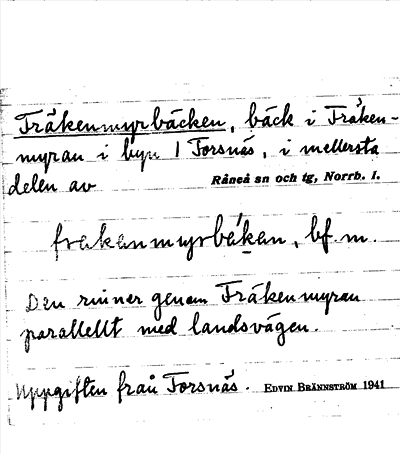 Fräkenmyrbäcken, bäck i Fräken-
myran i byn 1 Forsnäs, i mellersta
delen av Råneå sn och tg, Norrb. l.
frakanmyrbäkan, bf. m.
Den rinner genom Fräkenmyran
parallellt med landsvägen.
Uppgiften från Forsnäs. EDVIN BRÄNNSTRÖM 1941